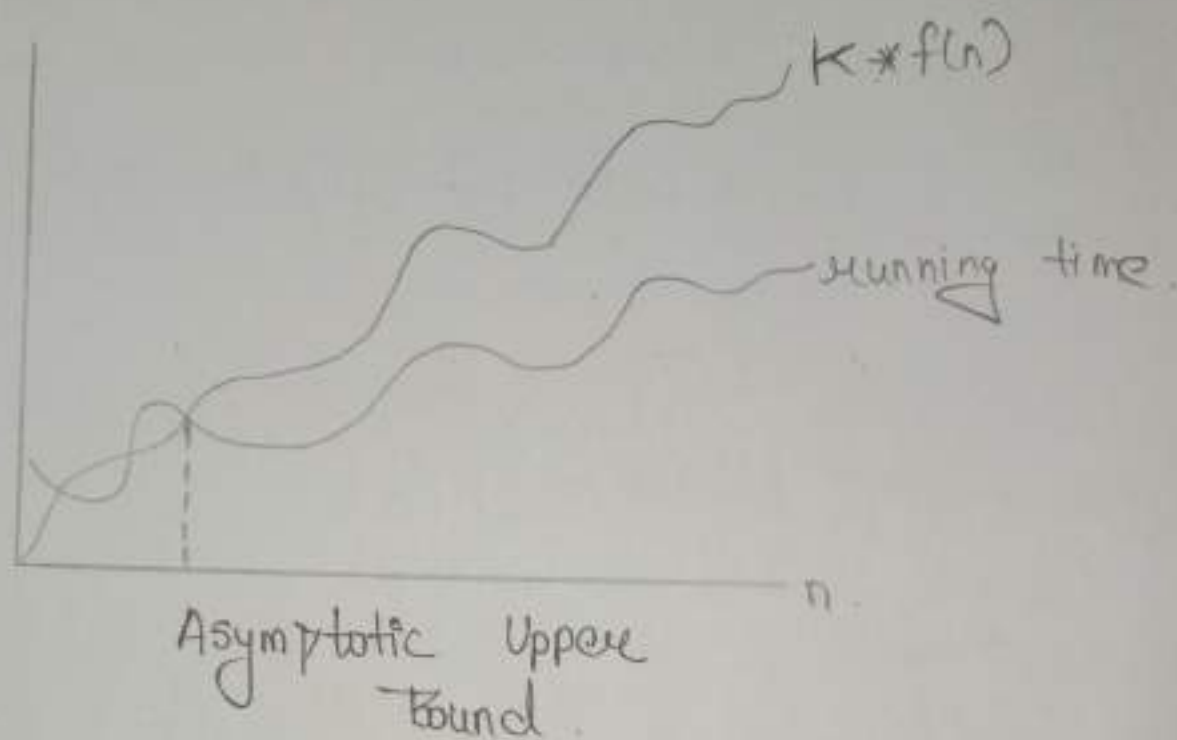 K * f(n)
running time.
n.
Asymptotic Upper
Bound.